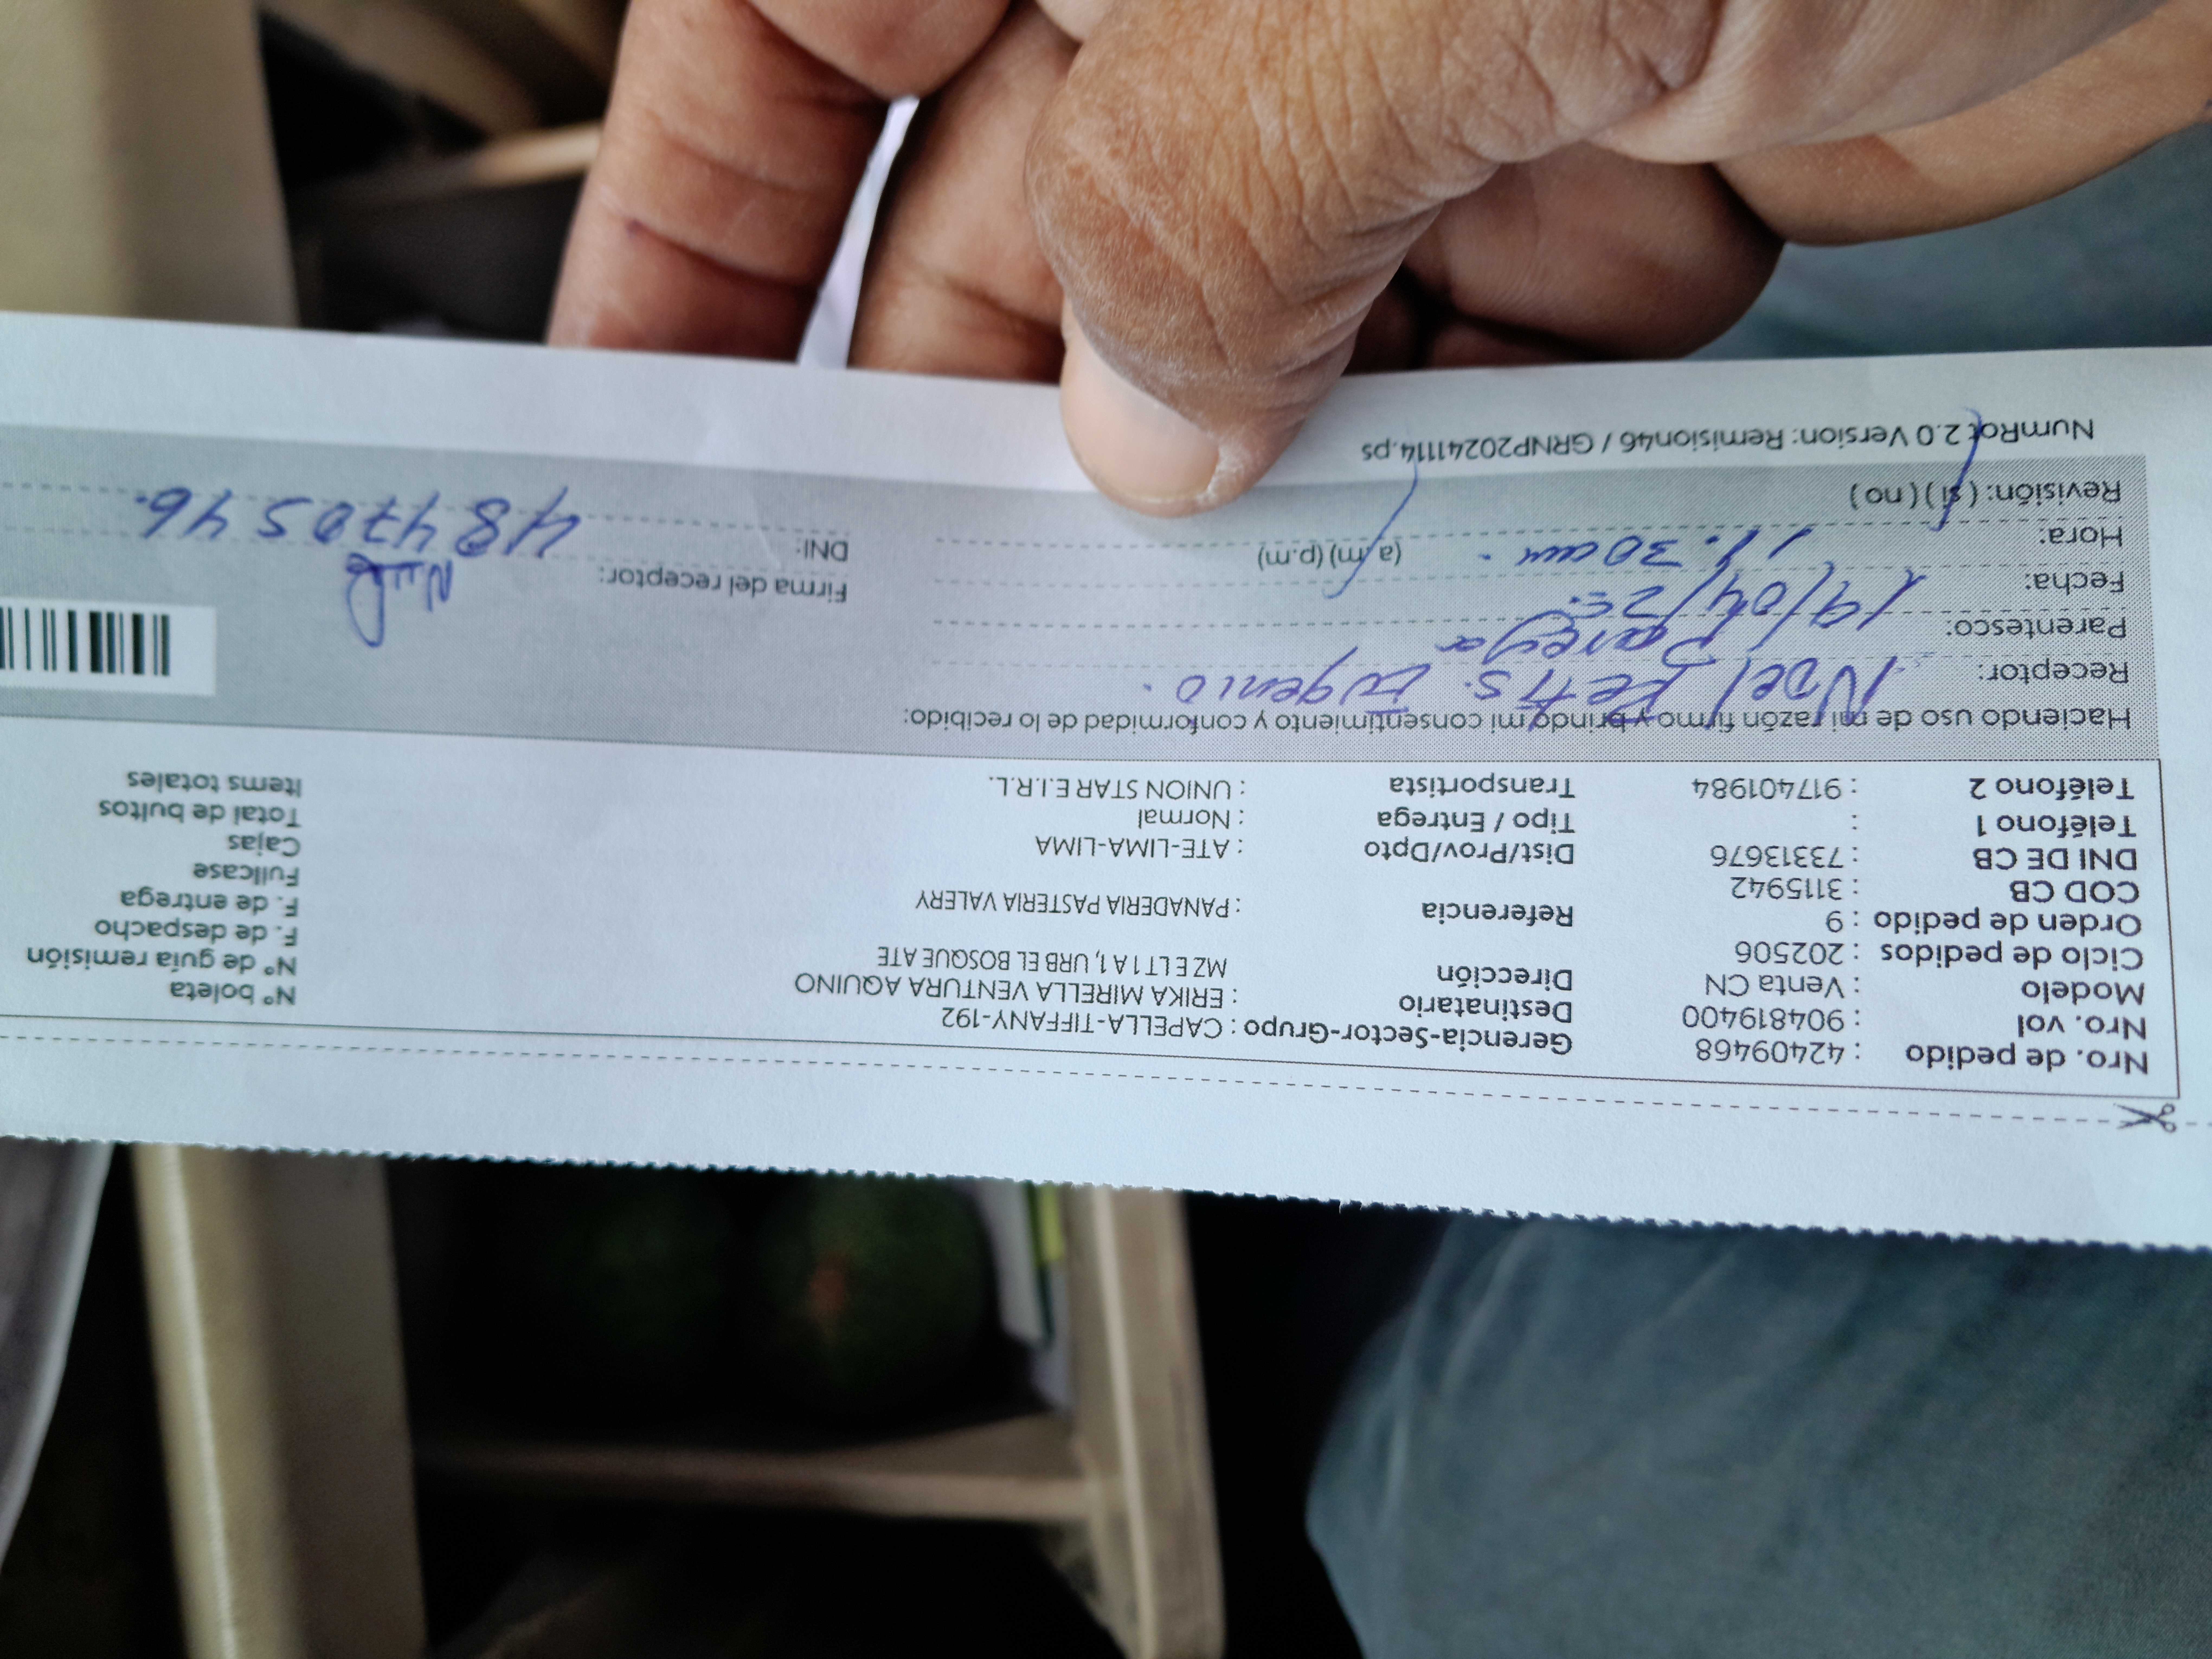 Nro. de pedido : 42409468
Nro. vol : 904819400
Modelo : Venta CN
Ciclo de pedidos : 202506
Orden de pedido : 9
COD CB : 3115942
DNI DE CB : 73313676
Teléfono 1 :
Teléfono 2 : 917401984
Gerencia-Sector-Grupo : CAPELLA-TIFFANY-192
Destinatario : ERIKA MIRELLA VENTURA AQUINO
Dirección MZ E LT 1 A 1, URB EL BOSQUE ATE
Referencia : PANADERIA PASTERIA VALERY
Dist/Prov/Dpto : ATE-LIMA-LIMA
Tipo / Entrega : Normal
Transportista : UNION STAR E.I.R.L.
N° boleta
N° de guía remisión
F. de despacho
F. de entrega
Fullcase
Cajas
Total de bultos
Items totales
Haciendo uso de mi razón firmo y brindo mi consentimiento y conformidad de lo recibido:
Receptor: Noel Eugenio.
Parentesco: Pareja
Fecha: 19/04/25.
Hora: 11.30 am. (a.m) (p.m)
Revisión: ( si ) ( no )
Firma del receptor:
DNI: 48470546.
NumRot 2.0 Version: Remision46 / GRNP20241114.ps